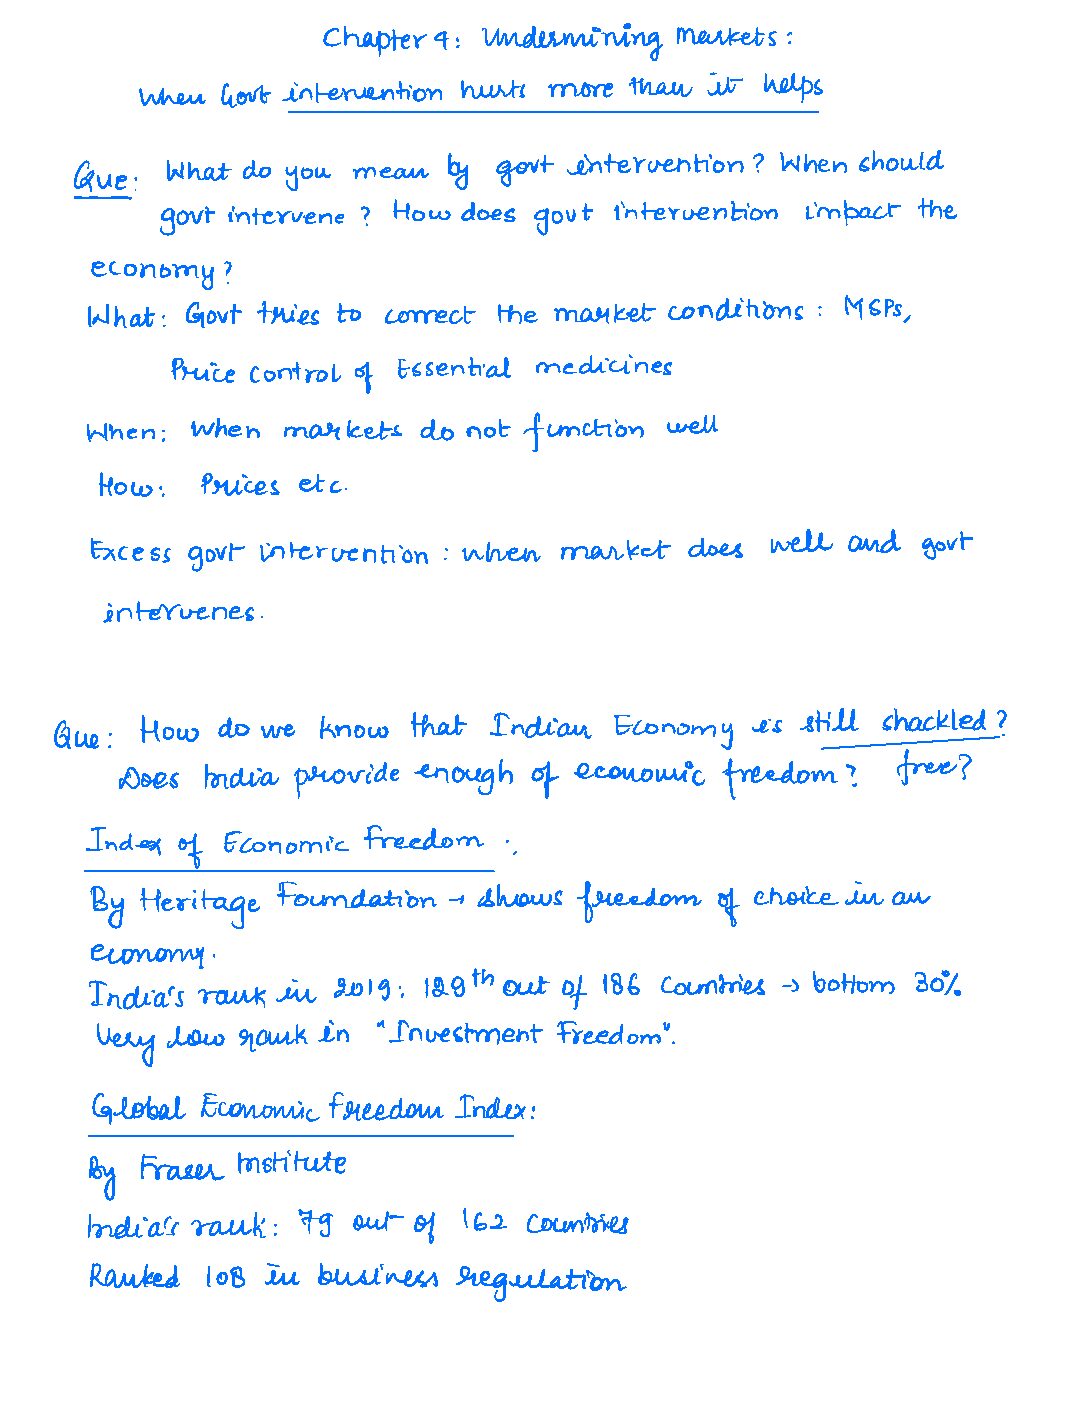 Chapter 4: Undermining Markets:
When Govt intervention hurts more than it helps
Que: What do you mean by govt intervention? When should
govt intervene? How does govt intervention impact the
economy?
What: Govt tries to correct the market conditions: MSPs,
Price control of Essential medicines
When: When markets do not function well
How: Prices etc.
Excess govt intervention: when market does well and govt
intervenes.
Que: How do we know that Indian Economy is still shackled?
Does India provide enough of economic freedom? free?
Index of Economic Freedom:
By Heritage Foundation → shows freedom of choice in an
economy.
India's rank in 2019: 129th out of 186 countries → bottom 30%
Very low rank in "Investment Freedom".
Global Economic Freedom Index:
By Fraser Institute
India's rank: 79 out of 162 countries
Ranked 108 in business regulation